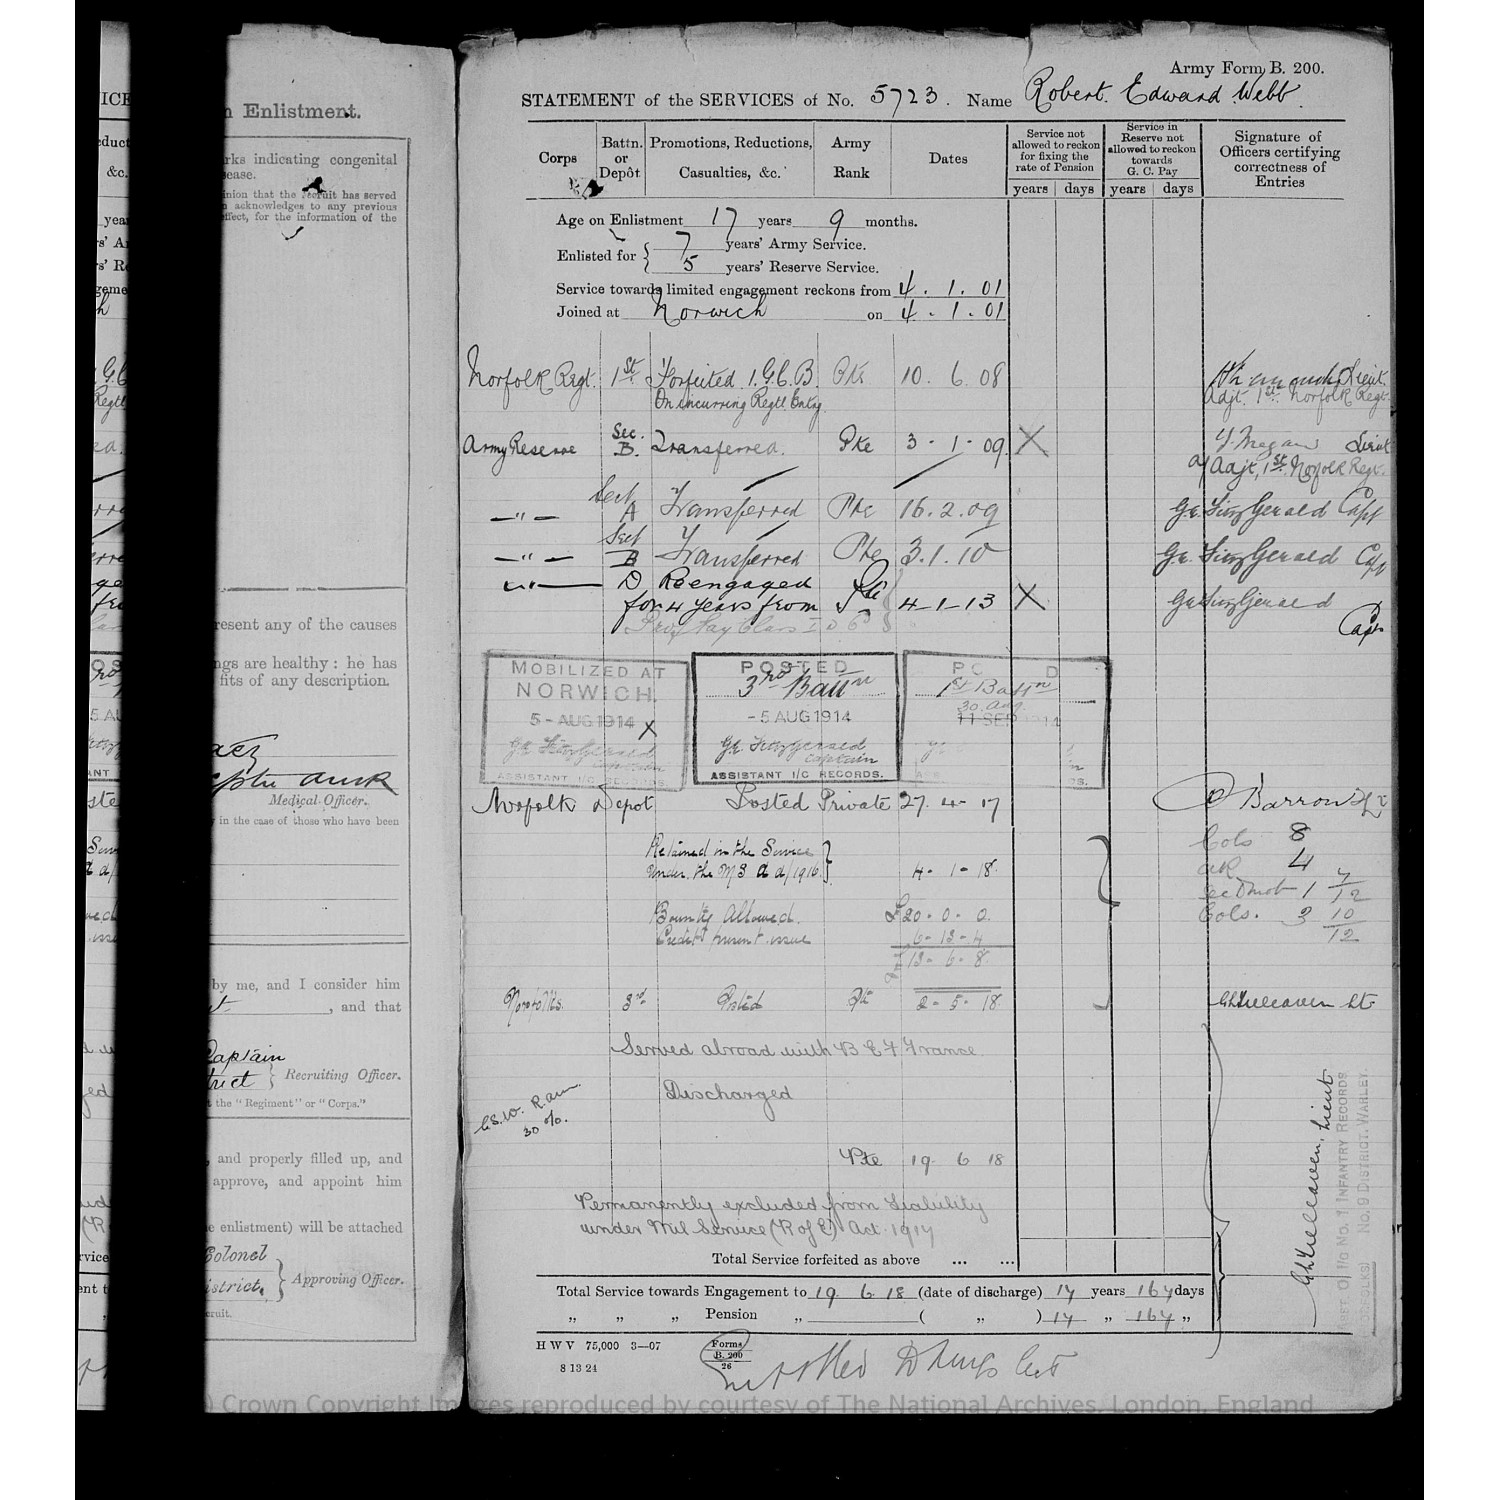 ICE
n Enlistment.
educt
&c.
rks indicating congenital
sease.
inion that the recruit has served
n acknowledges to any previous
effect, for the information of the
resent any of the causes
ngs are healthy : he has
fits of any description.
Medical Officer.
y in the case of those who have been
by me, and I consider him
, and that
Captain
trict } Recruiting Officer.
t the "Regiment" or "Corps."
, and properly filled up, and
approve, and appoint him
e enlistment) will be attached
Colonel
istrict, } Approving Officer.
cruit.
Army Form B. 200.
STATEMENT of the SERVICES of No. 5723. Name Robert Edward Webb.
Corps
Battn. or Depôt
Promotions, Reductions, Casualties, &c.
Army Rank
Dates
Service not allowed to reckon for fixing the rate of Pension
years days
Service in Reserve not allowed to reckon towards G. C. Pay
years days
Signature of Officers certifying correctness of Entries
Age on Enlistment 17 years 9 months.
Enlisted for { 7 years' Army Service.
5 years' Reserve Service.
Service towards limited engagement reckons from 4. 1. 01
Joined at Norwich on 4. 1. 01
Norfolk Regt. 1st Forfeited 1. G.C.B. Pte 10. 6. 08 Lieut.
On incurring Regtl Entry Adjt. 1st Norfolk Regt.
Army Reserve Sec. B. Transferred. Pte 3-1-09. X Lieut
a/Adjt, 1st Norfolk Regt.
—"— Sect A Transferred Pte 16.2.09 G.E. FitzGerald Capt
—"— Sect B Transferred Pte 3.1.10 G.E. FitzGerald Capt
—"— D Reengaged
for 4 years from Pte 4-1-13 X G.E. FitzGerald
Capt
MOBILIZED AT
NORWICH.
5-AUG 1914 X
G.E. FitzGerald
Captain
ASSISTANT I/C RECORDS.
POSTED
3rd Battn
-5 AUG 1914
G.E. FitzGerald
Captain
ASSISTANT I/C RECORDS.
PO D
1st Battn
30. Aug.
11 SEP 1914
Norfolk Depot Posted Private 27. 4- 17 Barrow
Retained in the Service
under the M S Act/1916. } 4- 1- 18.
Cols 8
4
1 7/12
Cols. 3 10/12
Bounty Allowed. £20-0-0.
Credit present issue 6-13-4
13-6-8.
Norfolks. 3rd Posted Pte 2-5-18. Lt
Served abroad with B E F France
Discharged
G.S.W. R. arm
30 %.
Pte 19 6 18
Permanently excluded from Liability
under Mil Service (R of E) Act. 1917
Total Service forfeited as above ... ...
Total Service towards Engagement to 19 6 18 (date of discharge) 17 years 167 days
" " " Pension " ( " ) 17 " 167 "
Lieut
I/C No. 1 INFANTRY RECORDS
No. 9 DISTRICT. WARLEY.
H W V 75,000 3—07
8 13 24
Forms
B. 200
26
Crown Copyright Images reproduced by courtesy of The National Archives. London, England